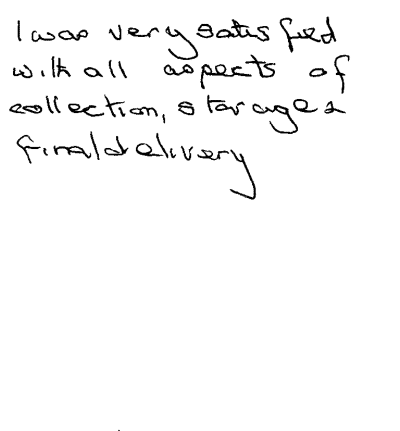 I was very satisfied
with all aspects of
collection, storage &
final delivery